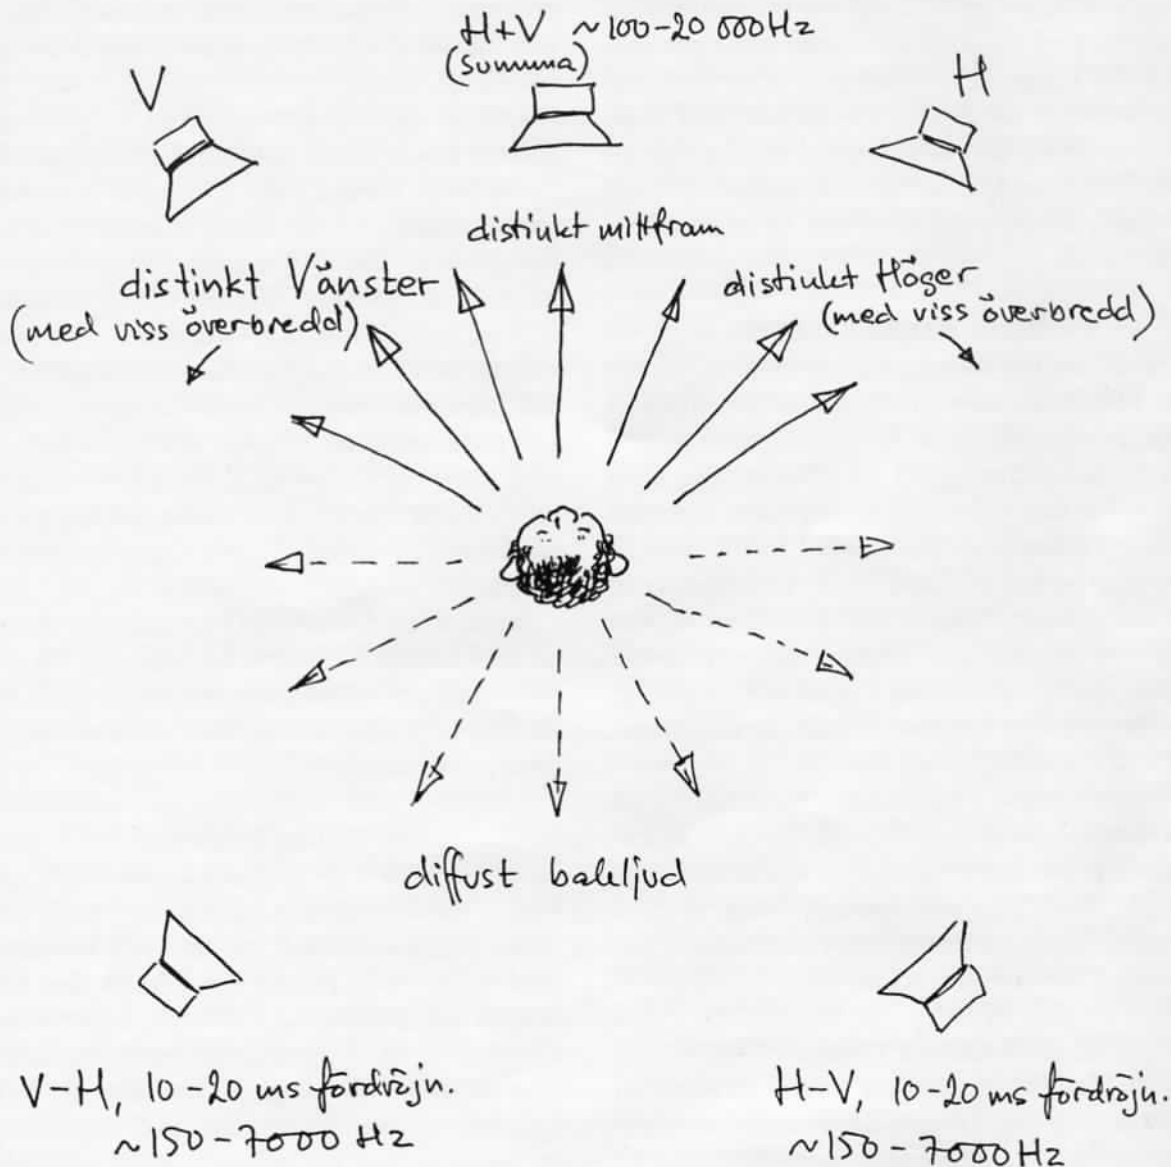 H+V ~100-20 000Hz
(summa)
V
H
distinkt mittfram
distinkt Vänster
(med viss överbredd)
distinkt Höger
(med viss överbredd)
diffust bakljud
V-H, 10-20 ms fördröjn.
~150-7000 Hz
H-V, 10-20 ms fördröjn.
~150-7000 Hz